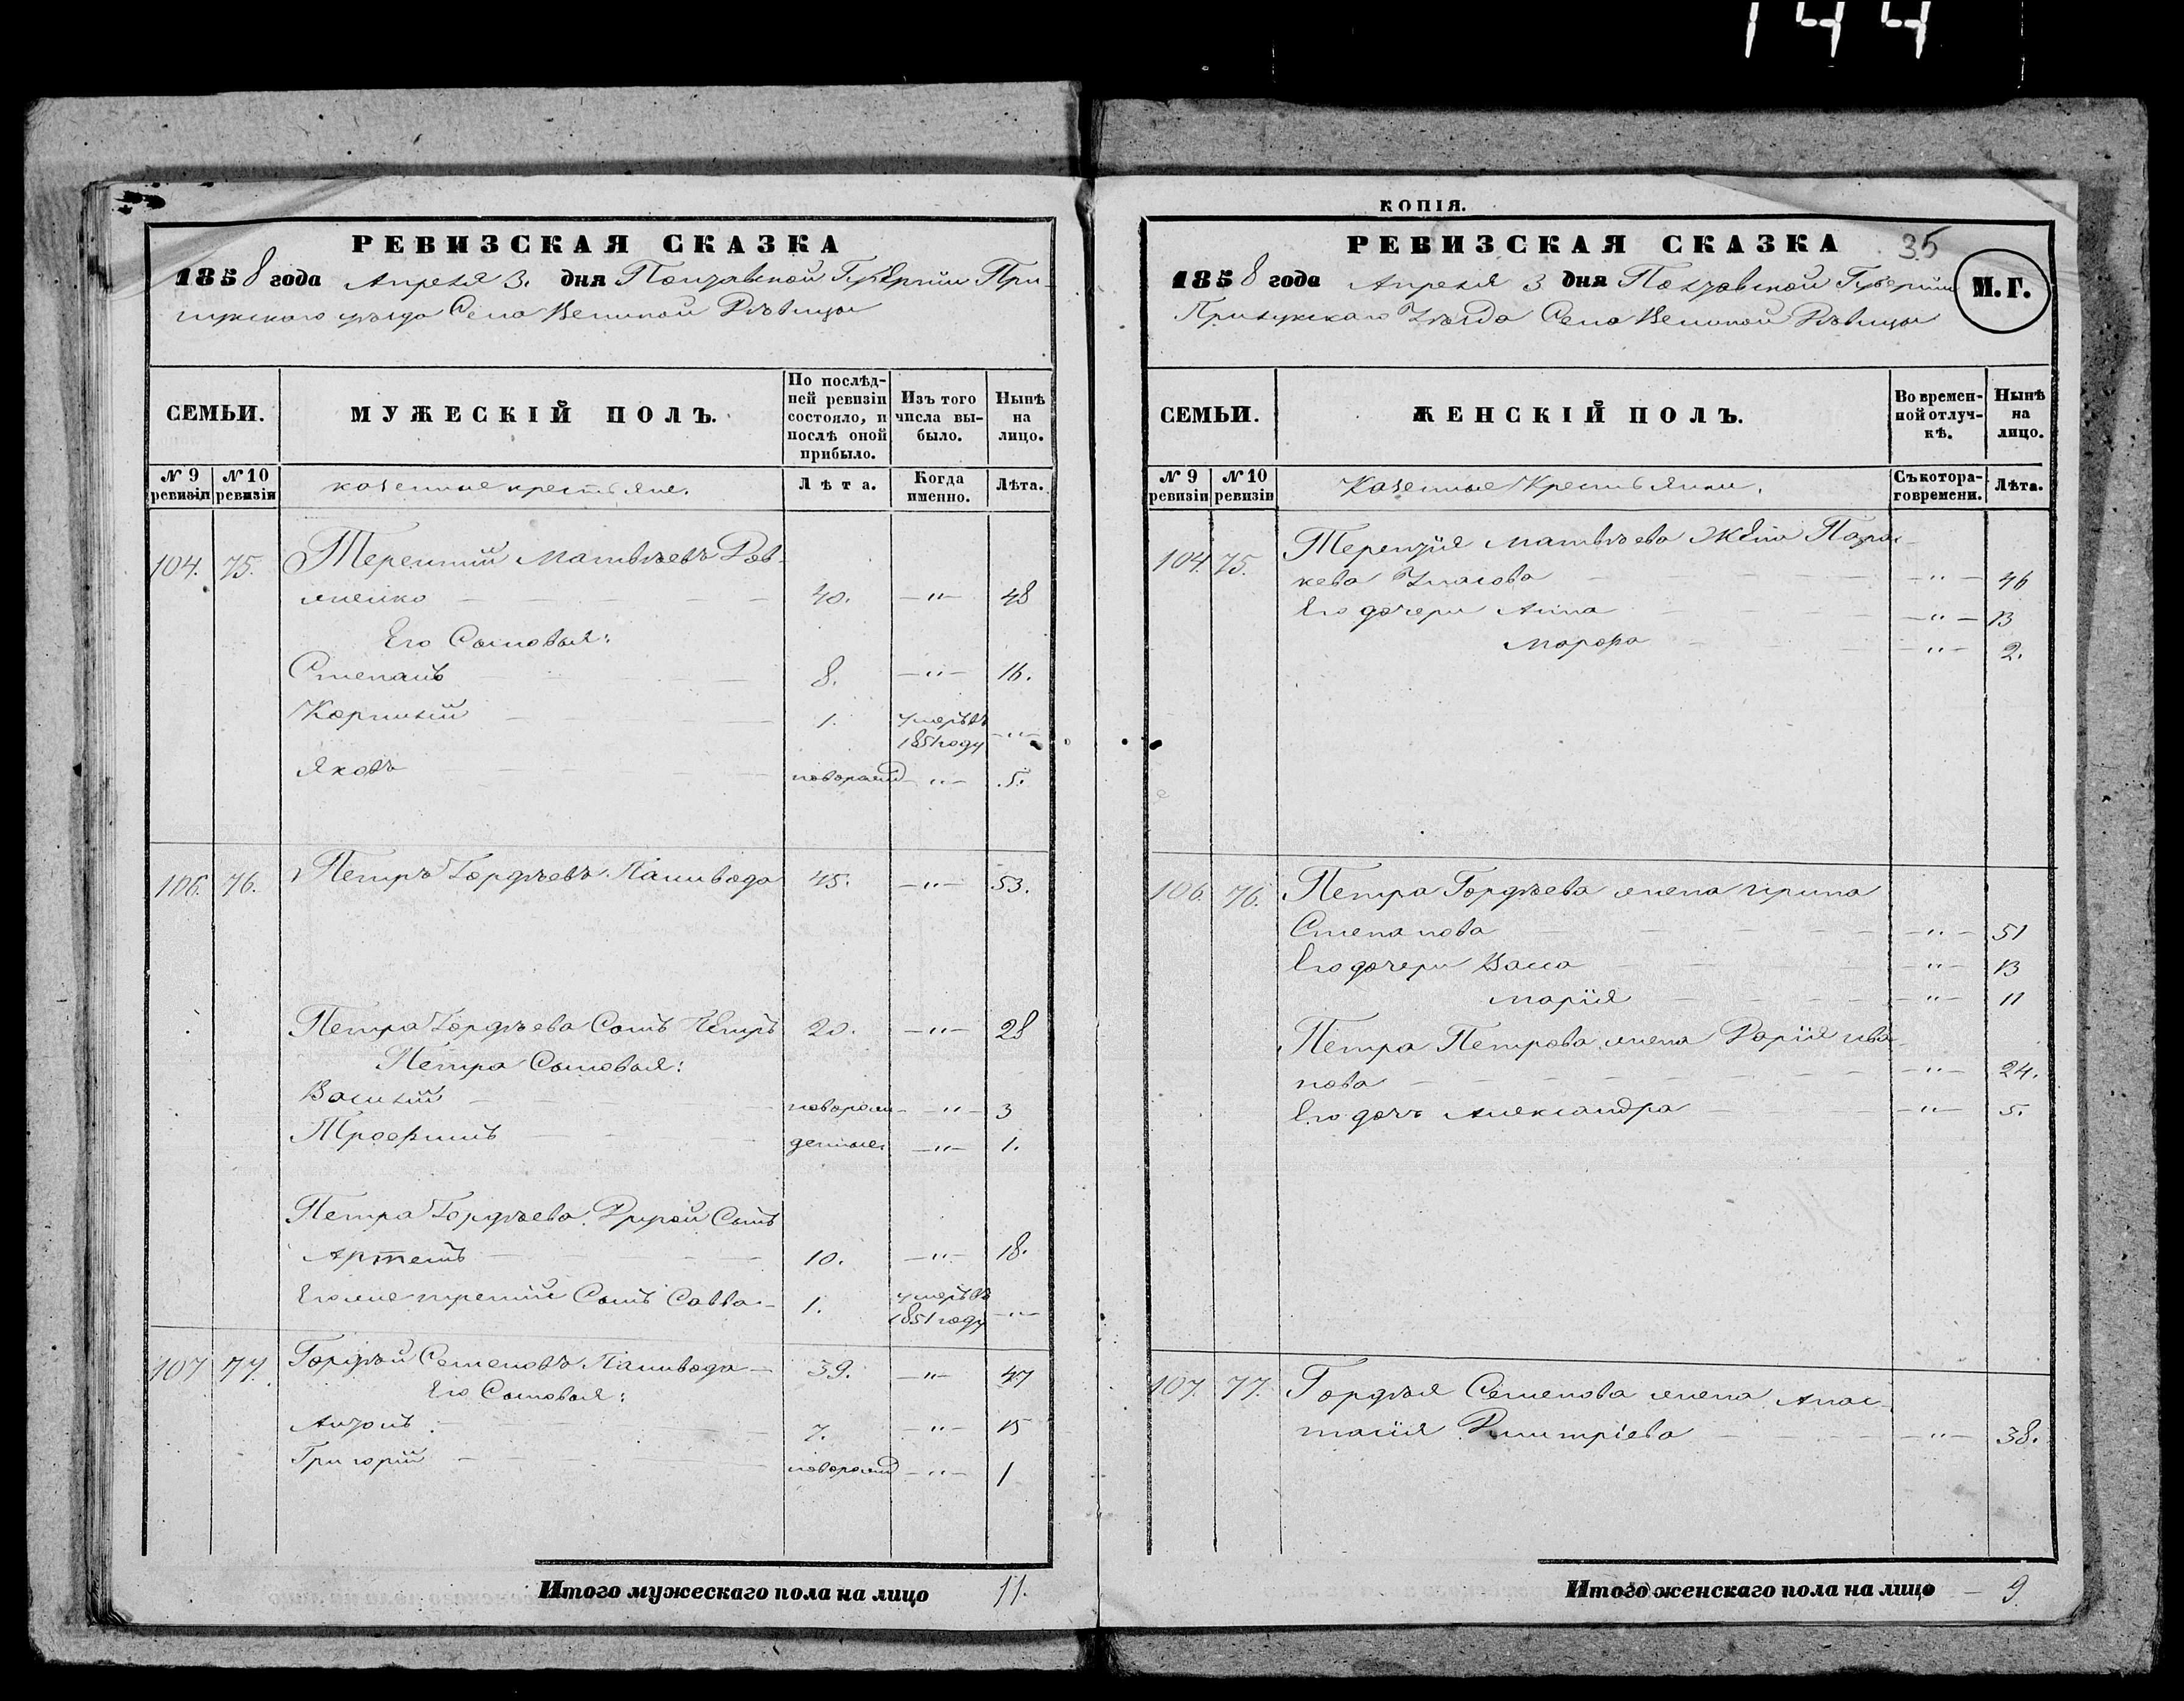 144
РЕВИЗСКАЯ СКАЗКА
1858 года Апреля 3. дня Полтавской Губернiи При-
лукскаго уѣзда Села Великой Дѣвицы
СЕМЬИ.
МУЖЕСКІЙ ПОЛЪ.
По послѣд-
ней ревизіи
состояло, и
послѣ оной
прибыло.
Изъ того
числа вы-
было.
Нынѣ
на
лицо.
№ 9
ревизіи
№ 10
ревизіи
казенные крестьяне.
Лѣта.
Когда
именно.
Лѣта.
104. 75. Терентий Матвѣевъ
40. —"— 48
Его Сыновья:
Степанъ 8. —"— 16.
Корнилій 1. умеръ въ
1851 году —"—
Яковъ новорожд —"— 5.
106. 76. Петръ Гордѣевъ Панивода 45. —"— 53.
Петра Гордѣева Сынъ Петръ 20. —"— 28
Петра Сыновья:
Василій новорож- —"— 3
Трофимъ денные. —"— 1.
Петра Гордѣева Другой Сынъ
Артемъ 10. —"— 18.
Его же третий Сынъ Савва 1. умеръ въ
1851 году —"—
107 77. Гордѣй Семеновъ Панивода 39. —"— 47
Его Сыновья:
Антонъ 7. —"— 15
Григорій новорожд —"— 1
Итого мужескаго пола на лицо 11.
КОПІЯ.
РЕВИЗСКАЯ СКАЗКА 35
1858 года Апреля 3 дня Полтавской Губерніи М. Г.
Прилукскаго Уѣзда Села Великой Дѣвицы
СЕМЬИ.
ЖЕНСКІЙ ПОЛЪ.
Во времен-
ной отлуч-
кѣ.
Нынѣ
на
лицо.
№ 9
ревизіи
№ 10
ревизіи
Казенные Крестьянки.
Съ котора-
го времени.
Лѣта.
104. 75. Терентія Матвѣева Жена Парас-
кева Власова —"— 46
Его дочери Анна —"— 13
Марфа —"— 2.
106. 76. Петра Гордѣева жена Ирина
Степанова —"— 51
Его дочери Васса —"— 13
Марія —"— 11
Петра Петрова жена Дарія Ива-
нова —"— 24.
Его дочь Александра —"— 5.
107. 77. Гордѣя Семенова жена Анас-
тасія Дмитріева —"— 38.
Итого женскаго пола на лицо — 9